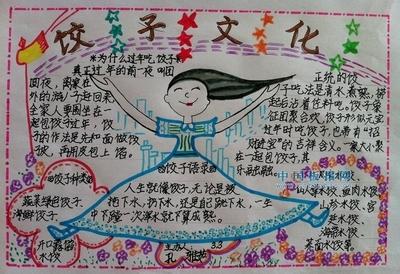 饺子文化
※为什么过年吃,饺子※
真正过年的前一夜叫团
圆夜,离家在
外的游子赶回来
全家人要围坐在一
起包饺子过年,饺
子的作法是先和面做饺
皮,再用皮包上馅。
正统的饺
子吃法是清水煮熟,捞
起后沾着佐料吃。饺子象
征团聚合欢,饺子形似元宝
过年时吃饺子,也带有"招
财进宝"的吉祥含义。一家人聚
在一起包饺子,其
乐融融。
◎饺子语录◎
人生就像饺子,无论是被
拖下水,扔下水,还是自己跳下水,一生
中不蹚一次浑水就不算成熟。
◎饺子种类◎
蔬菜绿色饺子
海鲜饺子
开口露馅
水饺
仙人掌水饺、鱼肉水饺
山珍水饺、宫
廷水饺、
海菜水饺
茶面水饺等。
3.3
孔
中国板报网